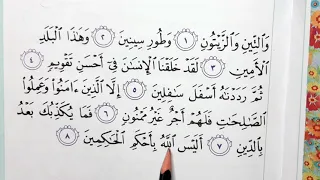 وَٱلتِّينِ وَٱلزَّيْتُونِ ١ وَطُورِ سِينِينَ ٢ وَهَٰذَا ٱلْبَلَدِ
ٱلْأَمِينِ ٣ لَقَدْ خَلَقْنَا ٱلْإِنسَٰنَ فِىٓ أَحْسَنِ تَقْوِيمٍ ٤
ثُمَّ رَدَدْنَٰهُ أَسْفَلَ سَٰفِلِينَ ٥ إِلَّا ٱلَّذِينَ ءَامَنُوا۟ وَعَمِلُوا۟
ٱلصَّٰلِحَٰتِ فَلَهُمْ أَجْرٌ غَيْرُ مَمْنُونٍ ٦ فَمَا يُكَذِّبُكَ بَعْدُ
بِٱلدِّينِ ٧ أَلَيْسَ ٱللَّهُ بِأَحْكَمِ ٱلْحَٰكِمِينَ ٨